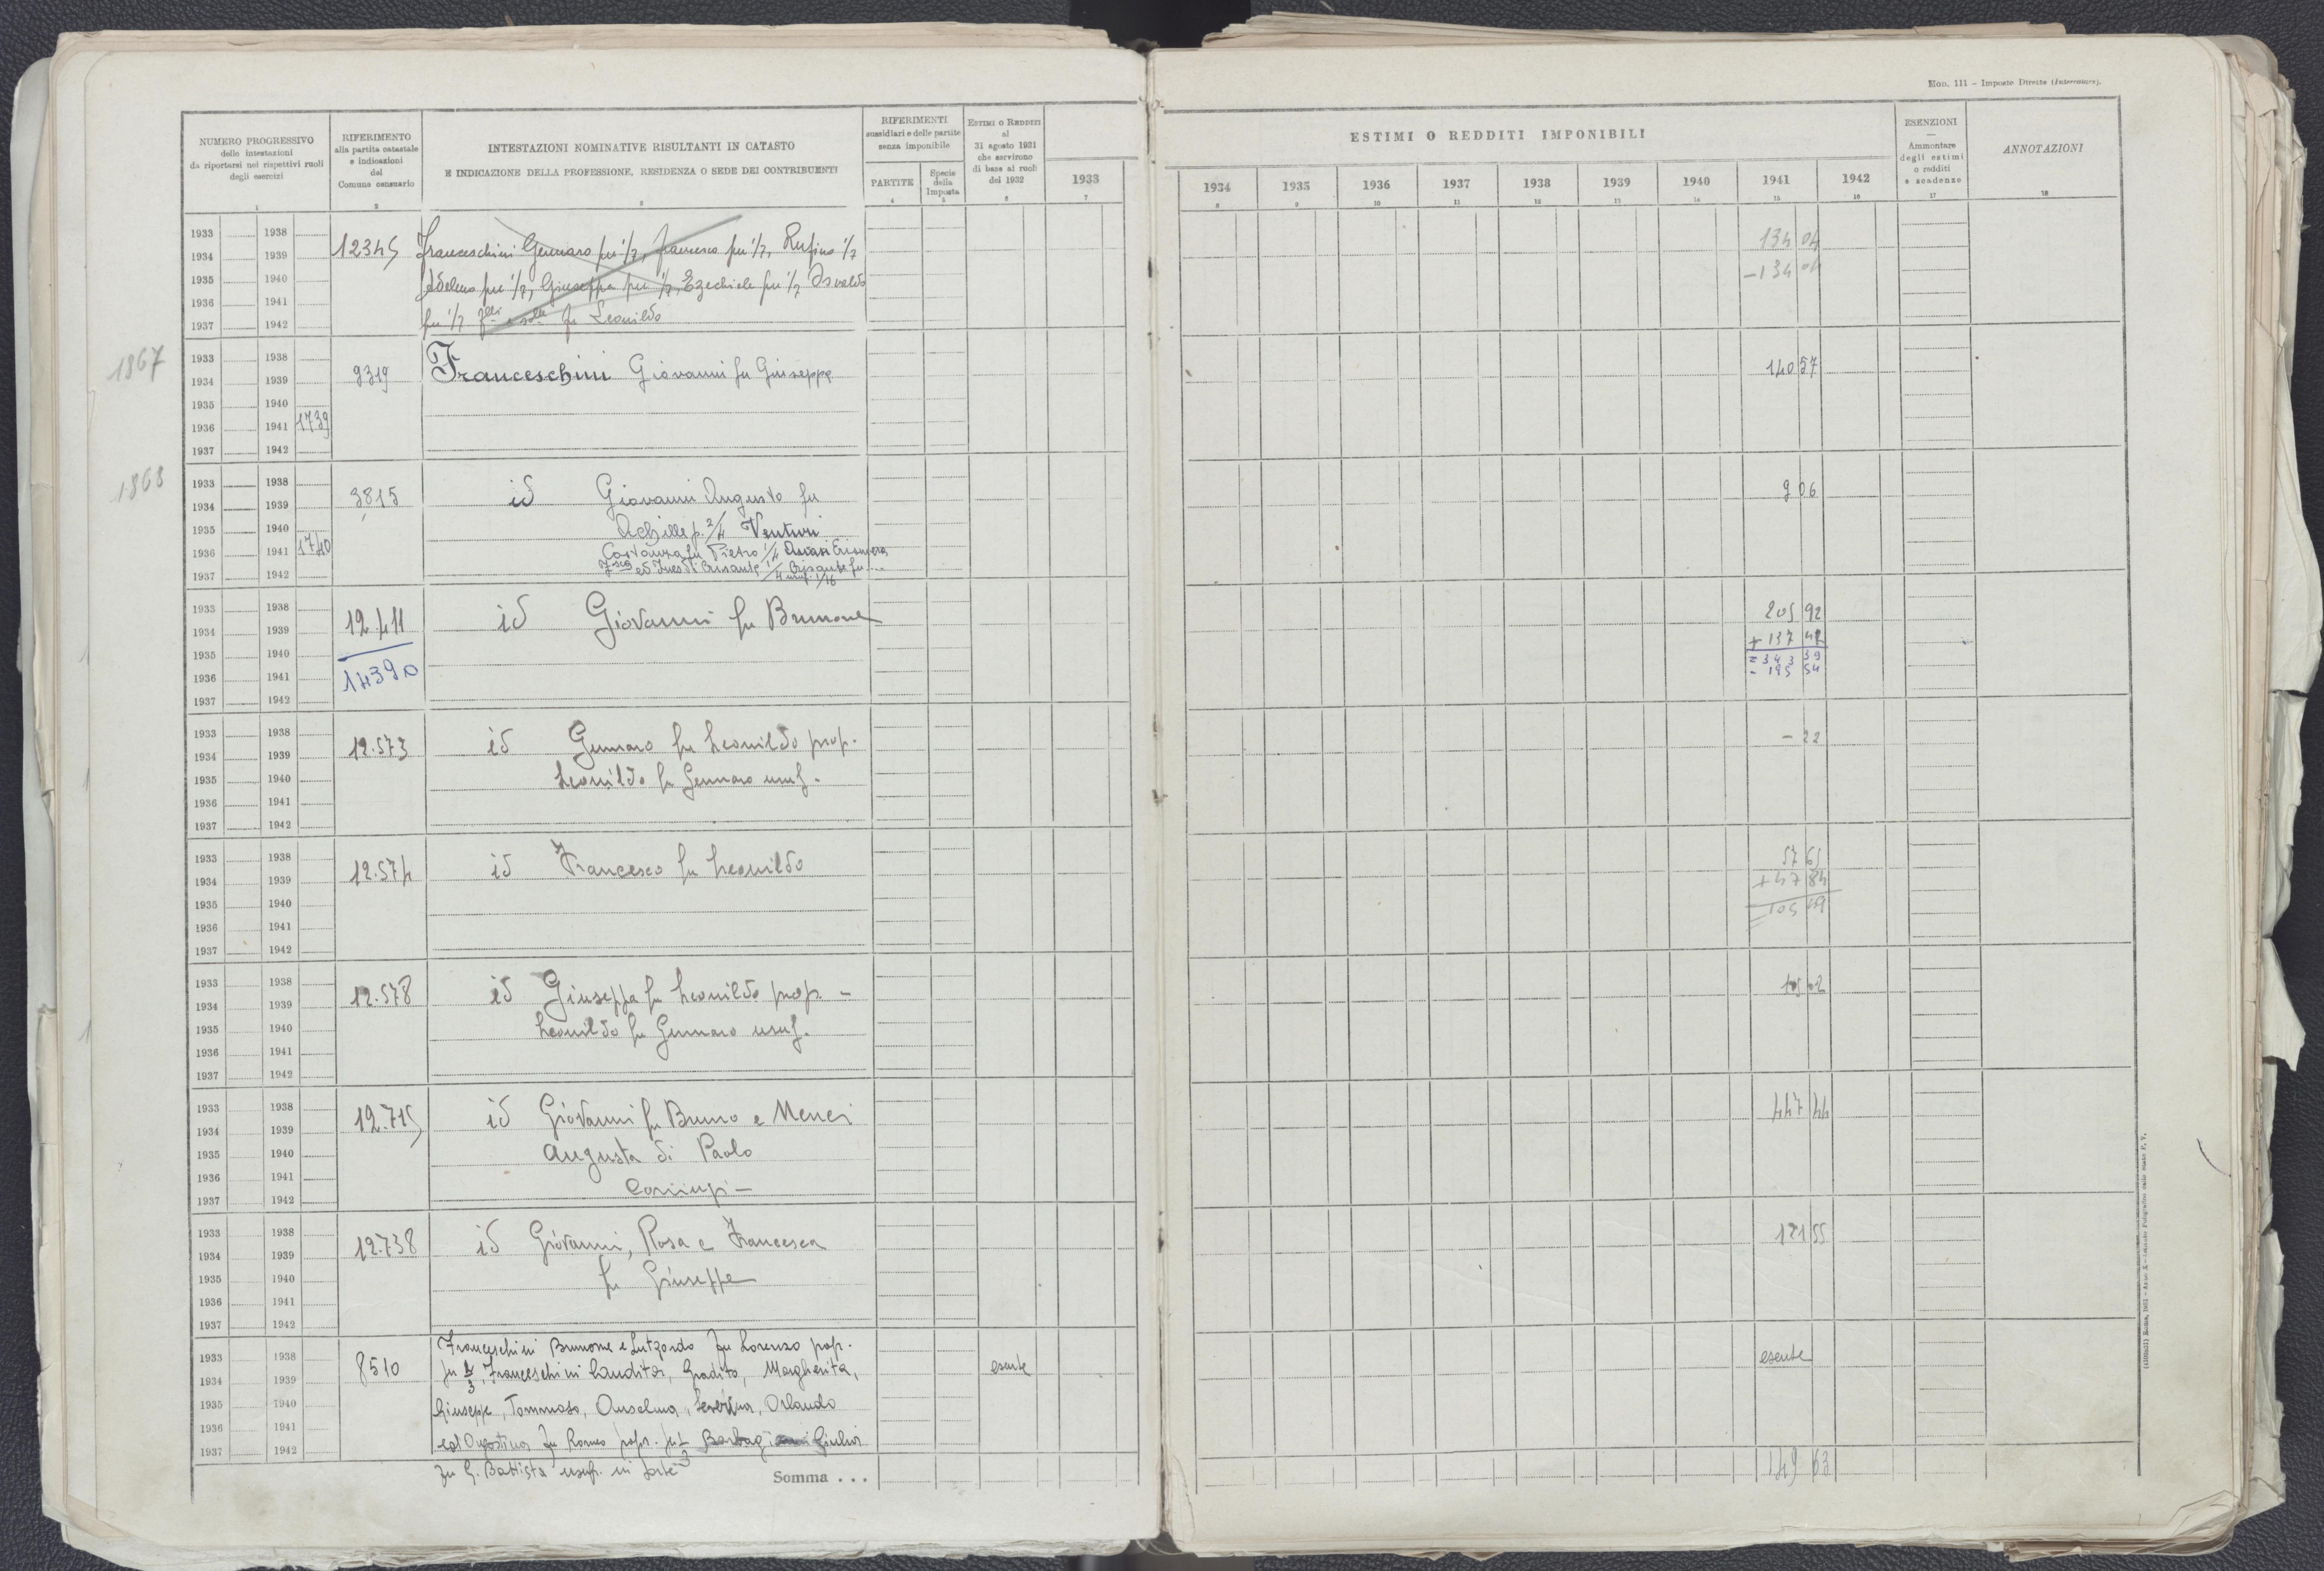 Mod. 111 – Imposte Dirette (Intercalare).
NUMERO PROGRESSIVO
delle intestazioni
da riportarsi nei rispettivi ruoli
degli esercizi
1
RIFERIMENTO
alla partita catastale
e indicazioni
del
Comune censuario
2
INTESTAZIONI NOMINATIVE RISULTANTI IN CATASTO
E INDICAZIONE DELLA PROFESSIONE, RESIDENZA O SEDE DEI CONTRIBUENTI
3
RIFERIMENTI
sussidiari e delle partite
senza imponibile
PARTITE
4
Specie
della
Imposta
5
ESTIMI O REDDITI
al
31 agosto 1931
che servirono
di base ai ruoli
del 1932
6
1933
7
ESTIMI O REDDITI IMPONIBILI
1934 1935 1936 1937 1938 1939 1940 1941 1942
8 9 10 11 12 13 14 15 16
ESENZIONI
—
Ammontare
degli estimi
o redditi
e scadenze
17
ANNOTAZIONI
18
1933 1938
1934 1939
1935 1940
1936 1941
1937 1942
12345
Franceschini Gennaro per 1/7, Francesco per 1/7, Rufino 1/7
Adelmo per 1/7, Giuseppa per 1/7, Ezechiele per 1/7 Osvaldo
per 1/7 flli eslle fu Leonildo
134 04
-134 04
1867
1933 1938
1934 1939
1935 1940
1936 1941 1739
1937 1942
9319
Franceschini Giovanni fu Giuseppe
140 57
1868
1933 1938
1934 1939
1935 1940
1936 1941 1740
1937 1942
3815
id Giovanni Augusto fu
Achille p. 2/4 Venturi
Costanza fu Pietro 1/4
ed Ines di Crisante 1/4
usuf. 1/16
9 06
1933 1938
1934 1939
1935 1940
1936 1941
1937 1942
12.411
14390
id Giovanni fu Brunone
205 92
+ 137 42
= 343 39
- 195 54
1933 1938
1934 1939
1935 1940
1936 1941
1937 1942
12.573
id Gennaro fu Leonildo prop.
Leonildo fu Gennaro usuf.
- 22
1933 1938
1934 1939
1935 1940
1936 1941
1937 1942
12.574
id Francesco fu Leonildo
57 65
+47 84
=105 49
1933 1938
1934 1939
1935 1940
1936 1941
1937 1942
12.578
id Giuseppa fu Leonildo prop. -
Leonildo fu Gennaro usuf.
02
1933 1938
1934 1939
1935 1940
1936 1941
1937 1942
12.715
id Giovanni fu Bruno e Menci
Augusta di Paolo
Coniugi -
447 44
1933 1938
1934 1939
1935 1940
1936 1941
1937 1942
12.738
id Giovanni, Rosa e Francesca
fu Giuseppe
121 55
1933 1938
1934 1939
1935 1940
1936 1941
1937 1942
8510
Franceschini Brunone e Lutzardo fu Lorenzo prop.
per 2/3, Franceschini Candita, Gradita, Margherita,
Giuseppe, Tommaso, Anselma, Severina, Orlando
ed Agostino fu Romeo prop. per 1/3 Giulia
fu G. Battista usuf. in parte
esente
esente
Somma . . .
149 63